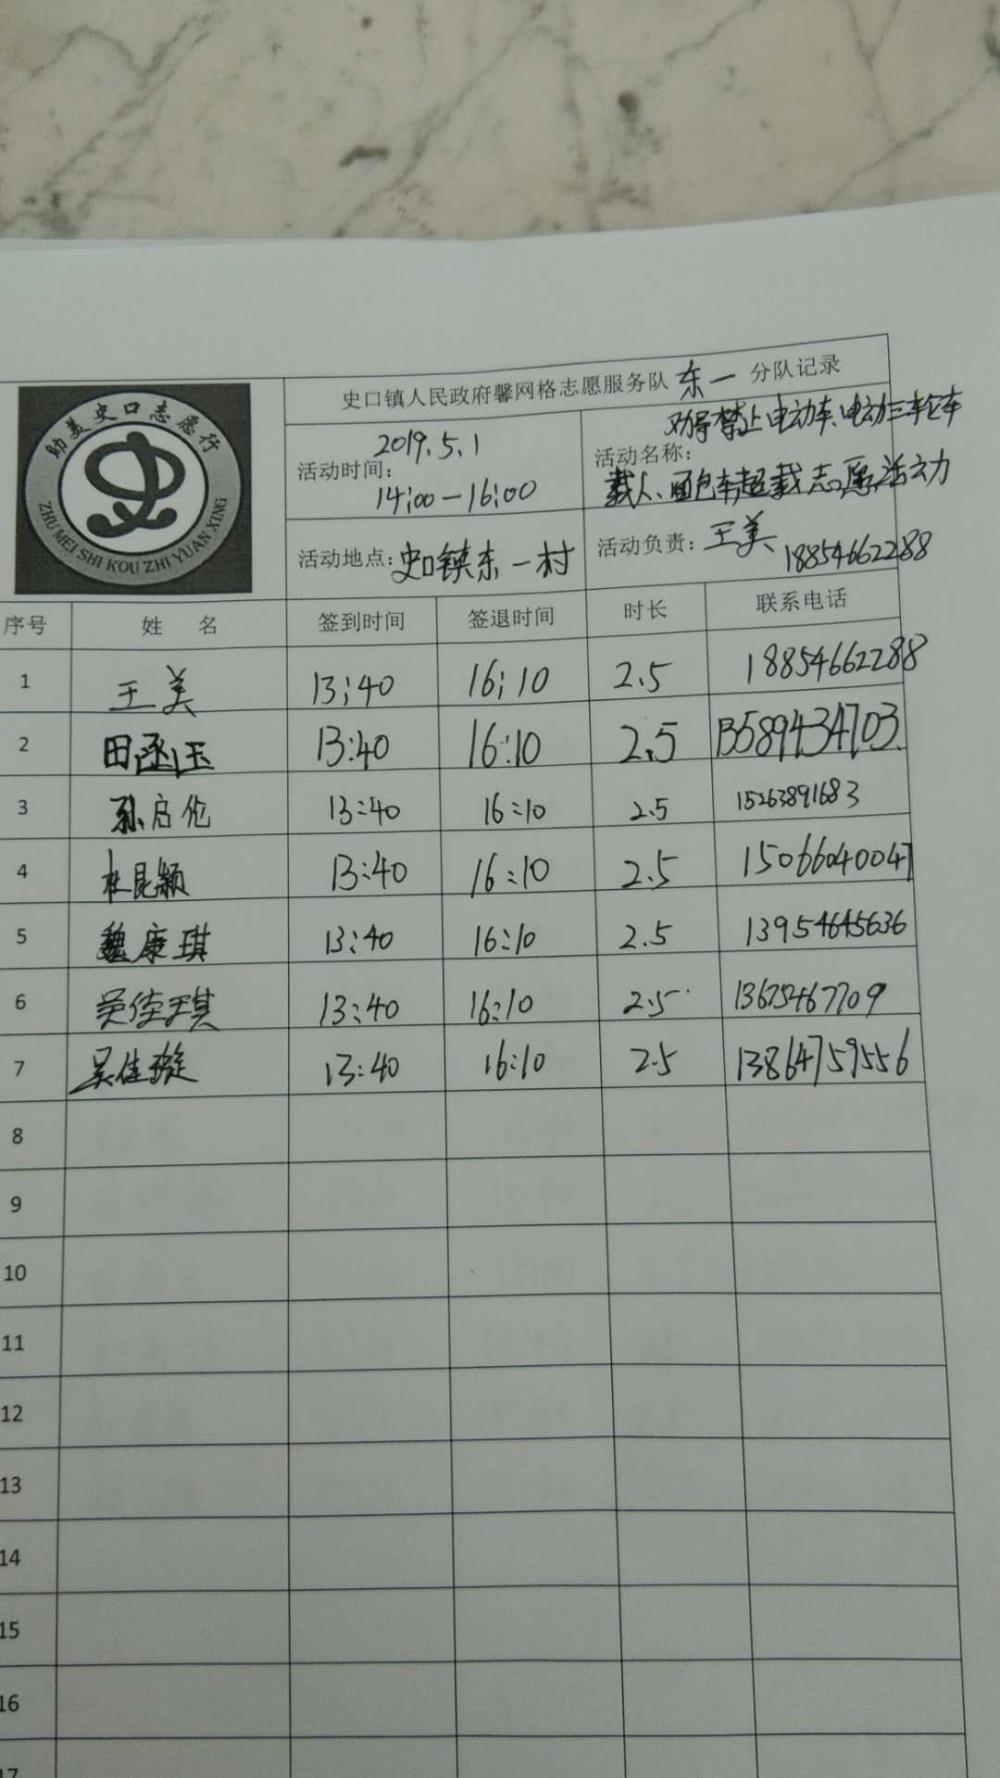 助美史口志愿行
ZHU MEI SHI KOU ZHI YUAN XING
史口镇人民政府馨网格志愿服务队 东一 分队记录
活动时间: 2019.5.1
14:00-16:00
活动名称: 劝导禁止电动车、电动三轮车
载人、面包车超载志愿活动
活动地点: 史口镇东一村
活动负责: 王美 18854662288
序号 姓 名 签到时间 签退时间 时长 联系电话
1 王美 13:40 16:10 2.5 18854662288
2 田涵玉 13:40 16:10 2.5 13589434703
3 孙启伦 13:40 16:10 2.5 15263891683
4 杜昆颖 13:40 16:10 2.5 15066040047
5 魏康琪 13:40 16:10 2.5 13954645636
6 吴佳琪 13:40 16:10 2.5 13675467709
7 吴佳璇 13:40 16:10 2.5 13864759556
8
9
10
11
12
13
14
15
16
17